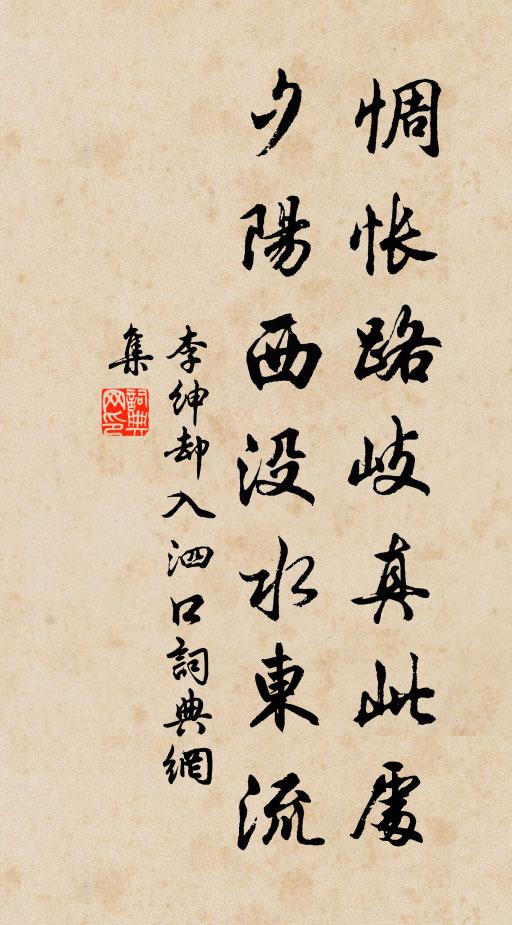 惆悵路岐真此處
夕陽西没水東流
李紳却入泗口詞典網
集
詞典
网印